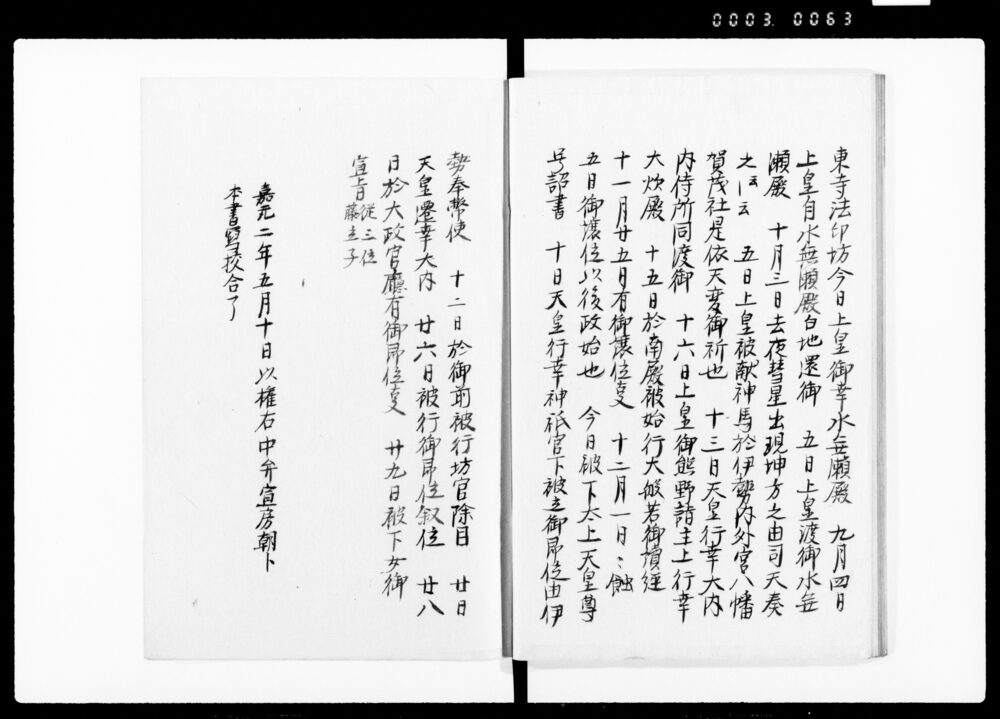 0003.0063
東寺法印坊今日上皇御幸水無瀬殿　九月四日
上皇自水無瀬殿白地還御　五日上皇渡御水無
瀬殿　十月三日去夜彗星出現坤方之由司天奏
之云云　五日上皇被献神馬於伊勢内外宮八幡
賀茂社是依天変御祈也　十三日天皇行幸大内
内侍所同渡御　十六日上皇御熊野詣主上行幸
大炊殿　十五日於南殿被始行大般若御讀経
十一月廿五日有御譲位事　十二月一日〻蝕
五日御譲位以後政始也　今日被下太上天皇尊
号詔書　十日天皇行幸神祇官下被立御即位由伊
勢奉幣使　十二日於御前被行坊官除目　廿日
天皇遷幸大内　廿六日被行御即位叙位　廿八
日於大政官廳有御即位事　廿九日被下女御
宣旨従三位
藤立子
嘉元二年五月十日以権右中弁宣房朝卜
本書校合了